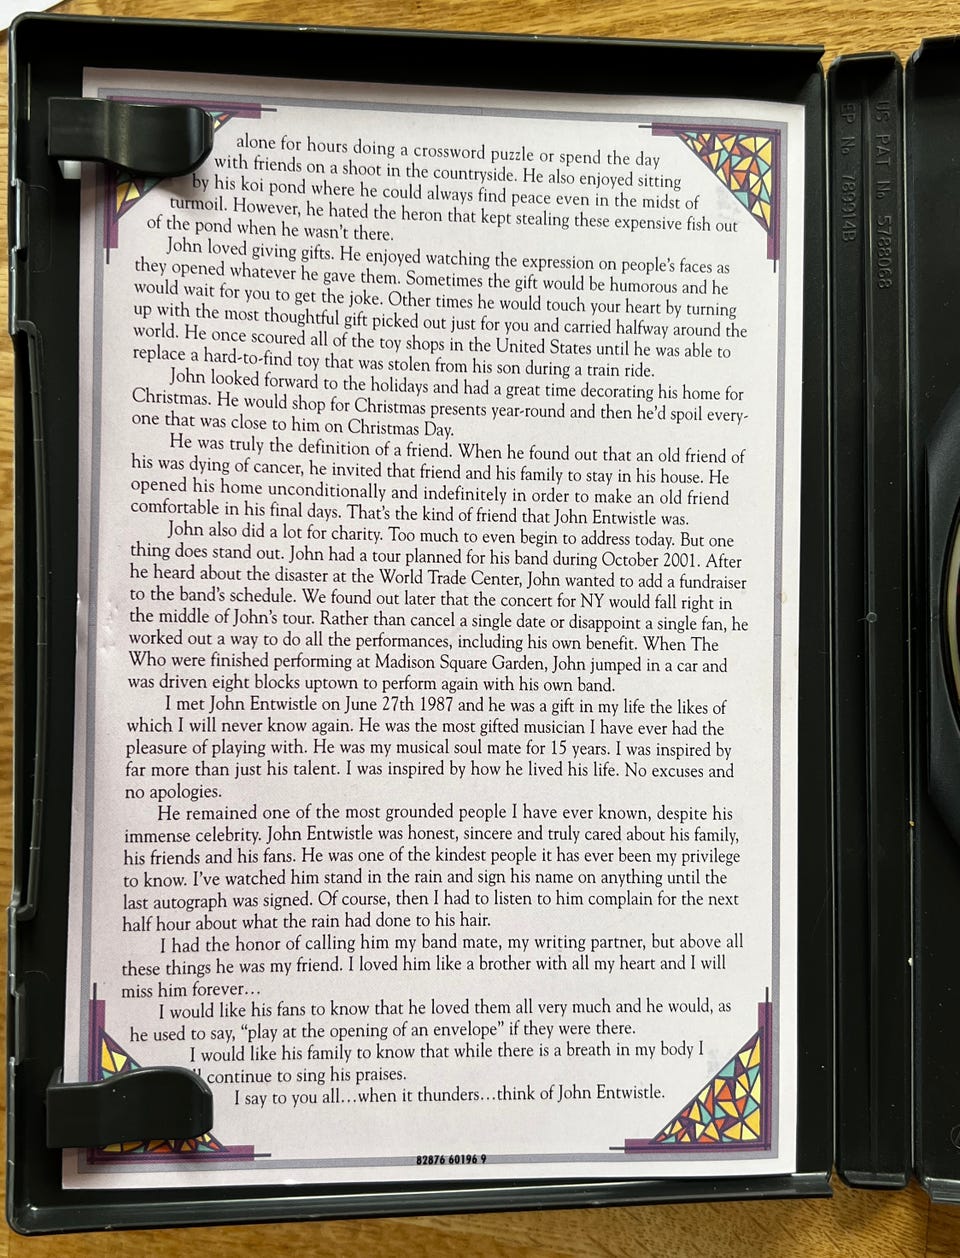 alone for hours doing a crossword puzzle or spend the day
with friends on a shoot in the countryside. He also enjoyed sitting
by his koi pond where he could always find peace even in the midst of
turmoil. However, he hated the heron that kept stealing these expensive fish out
of the pond when he wasn't there.
John loved giving gifts. He enjoyed watching the expression on people's faces as
they opened whatever he gave them. Sometimes the gift would be humorous and he
would wait for you to get the joke. Other times he would touch your heart by turning
up with the most thoughtful gift picked out just for you and carried halfway around the
world. He once scoured all of the toy shops in the United States until he was able to
replace a hard-to-find toy that was stolen from his son during a train ride.
John looked forward to the holidays and had a great time decorating his home for
Christmas. He would shop for Christmas presents year-round and then he'd spoil every-
one that was close to him on Christmas Day.
He was truly the definition of a friend. When he found out that an old friend of
his was dying of cancer, he invited that friend and his family to stay in his house. He
opened his home unconditionally and indefinitely in order to make an old friend
comfortable in his final days. That's the kind of friend that John Entwistle was.
John also did a lot for charity. Too much to even begin to address today. But one
thing does stand out. John had a tour planned for his band during October 2001. After
he heard about the disaster at the World Trade Center, John wanted to add a fundraiser
to the band's schedule. We found out later that the concert for NY would fall right in
the middle of John's tour. Rather than cancel a single date or disappoint a single fan, he
worked out a way to do all the performances, including his own benefit. When The
Who were finished performing at Madison Square Garden, John jumped in a car and
was driven eight blocks uptown to perform again with his own band.
I met John Entwistle on June 27th 1987 and he was a gift in my life the likes of
which I will never know again. He was the most gifted musician I have ever had the
pleasure of playing with. He was my musical soul mate for 15 years. I was inspired by
far more than just his talent. I was inspired by how he lived his life. No excuses and
no apologies.
He remained one of the most grounded people I have ever known, despite his
immense celebrity. John Entwistle was honest, sincere and truly cared about his family,
his friends and his fans. He was one of the kindest people it has ever been my privilege
to know. I've watched him stand in the rain and sign his name on anything until the
last autograph was signed. Of course, then I had to listen to him complain for the next
half hour about what the rain had done to his hair.
I had the honor of calling him my band mate, my writing partner, but above all
these things he was my friend. I loved him like a brother with all my heart and I will
miss him forever...
I would like his fans to know that he loved them all very much and he would, as
he used to say, "play at the opening of an envelope" if they were there.
I would like his family to know that while there is a breath in my body I
continue to sing his praises.
I say to you all...when it thunders...think of John Entwistle.
82876 60196 9
EP No 789914B
US PAT No 5788068